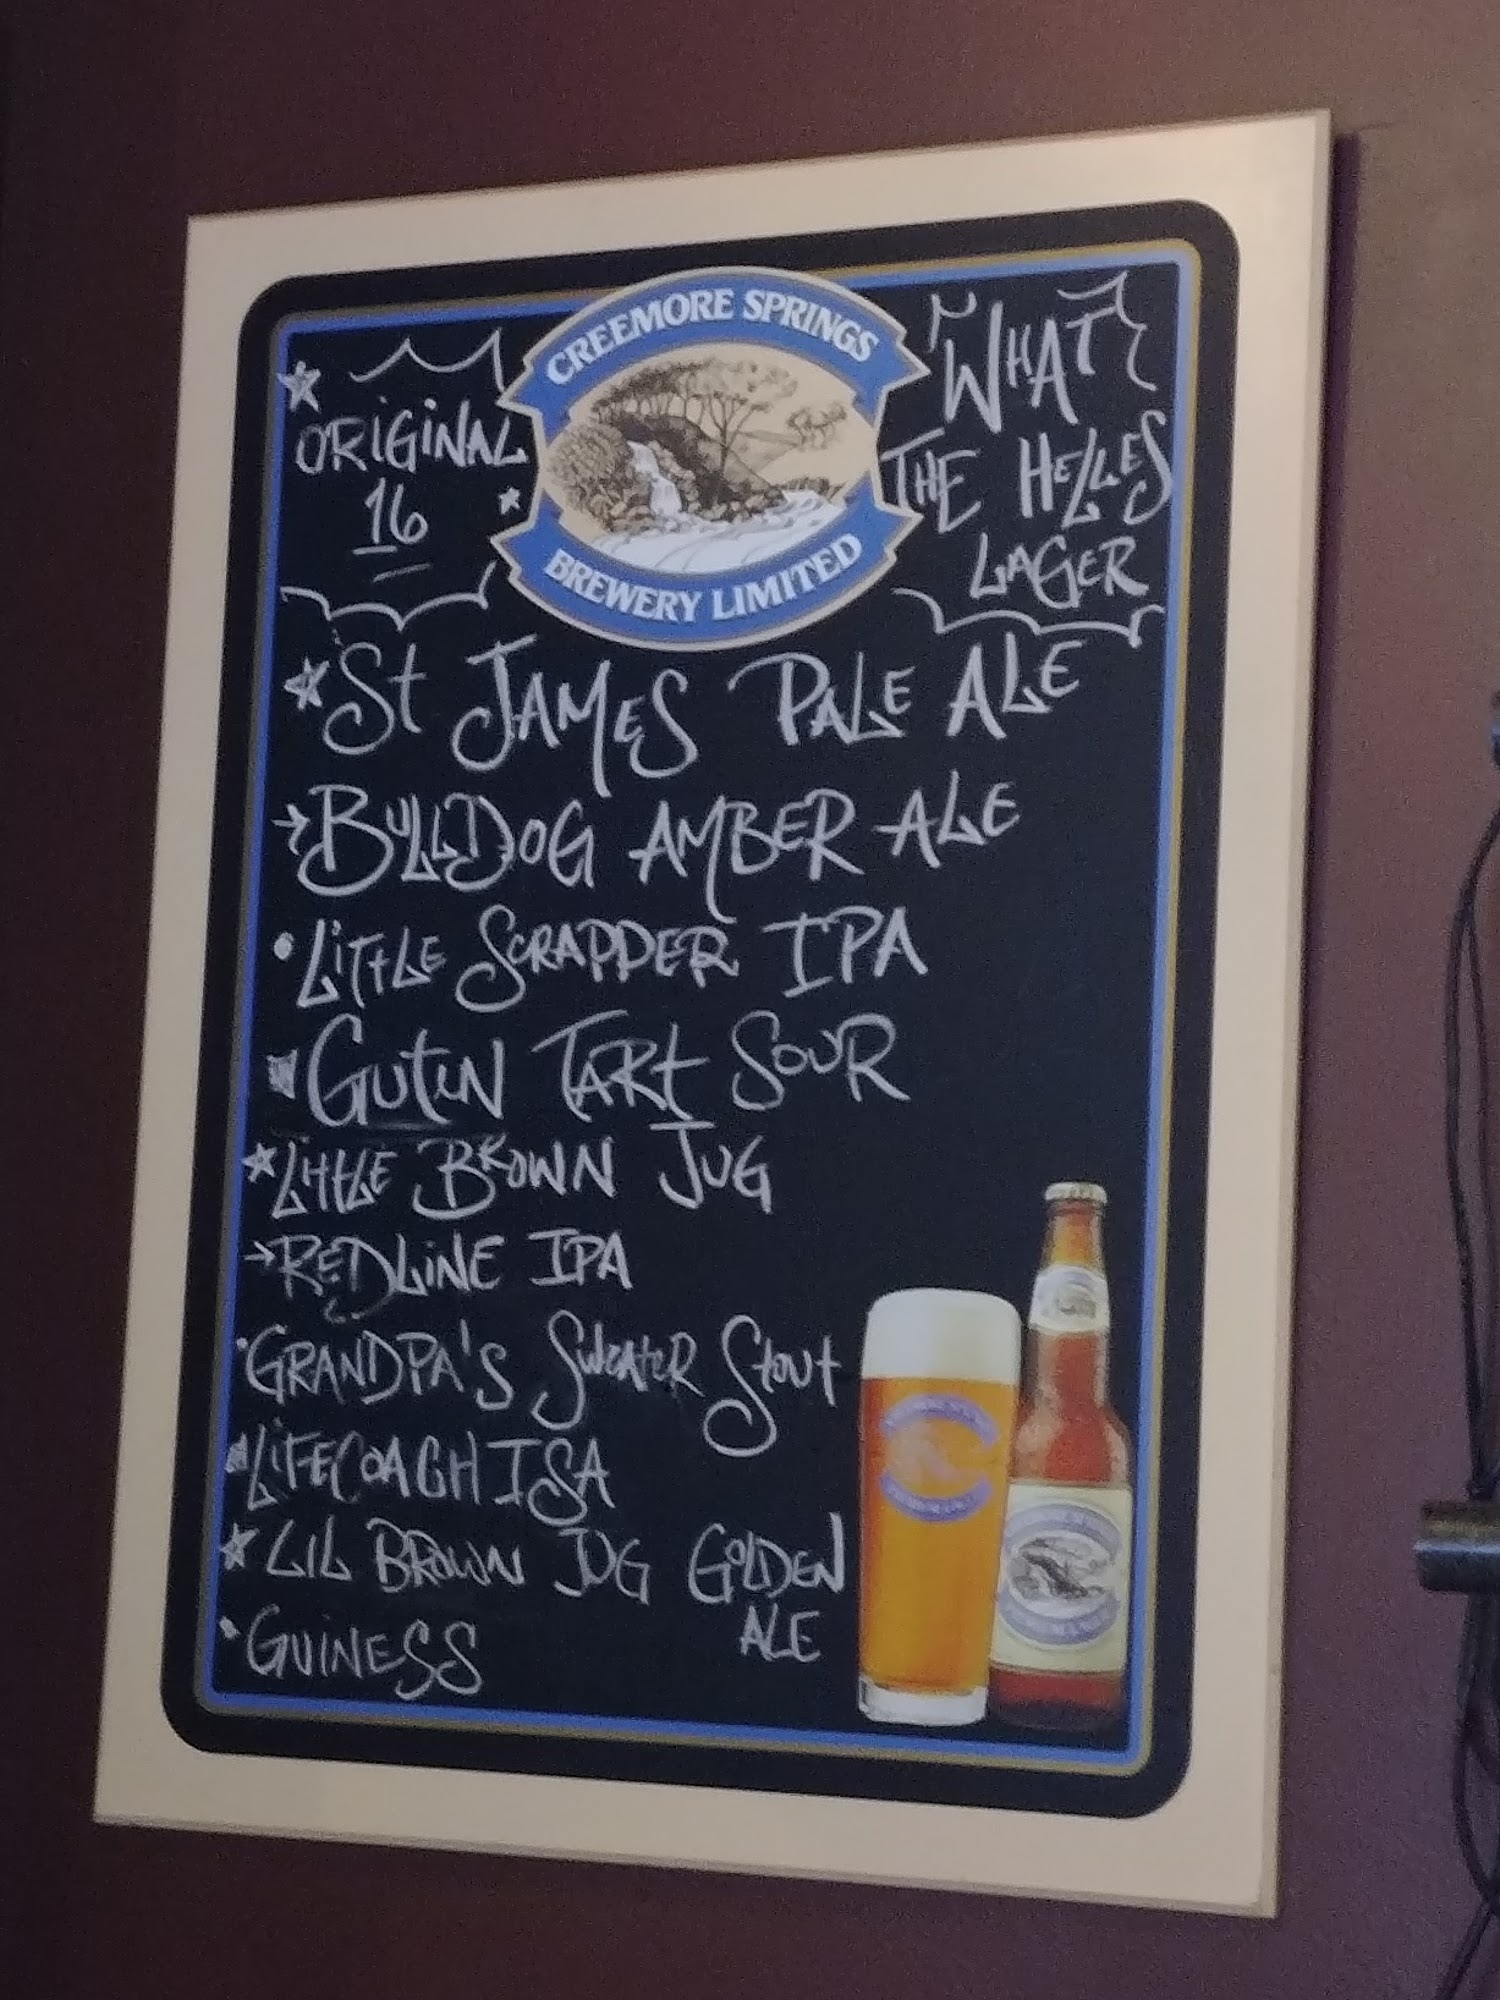 CREEMORE SPRINGS
BREWERY LIMITED
ORIGINAL
16
WHAT
THE HELLES
LAGER
St JAMES PALE ALE
BULLDOG AMBER ALE
LITTLE SCRAPPER IPA
GUTEN TART SOUR
LITTLE BROWN JUG
REDLINE IPA
GRANDPA'S SWEATER STOUT
LIFECOACH ISA
LIL BROWN JUG GOLDEN
ALE
GUINESS